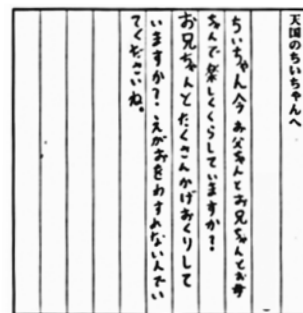 天国のちいちゃんへ
ちいちゃん今お父ちゃんとお兄ちゃんとお母
ちゃんで楽しくくらしていますか？
お兄ちゃんとたくさんかげおくりして
いますか？えがおをわすれないんでい
てくださいね。